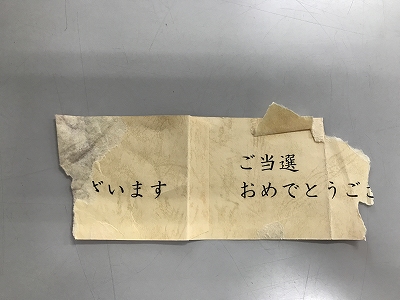 ご当選
います おめでとうご